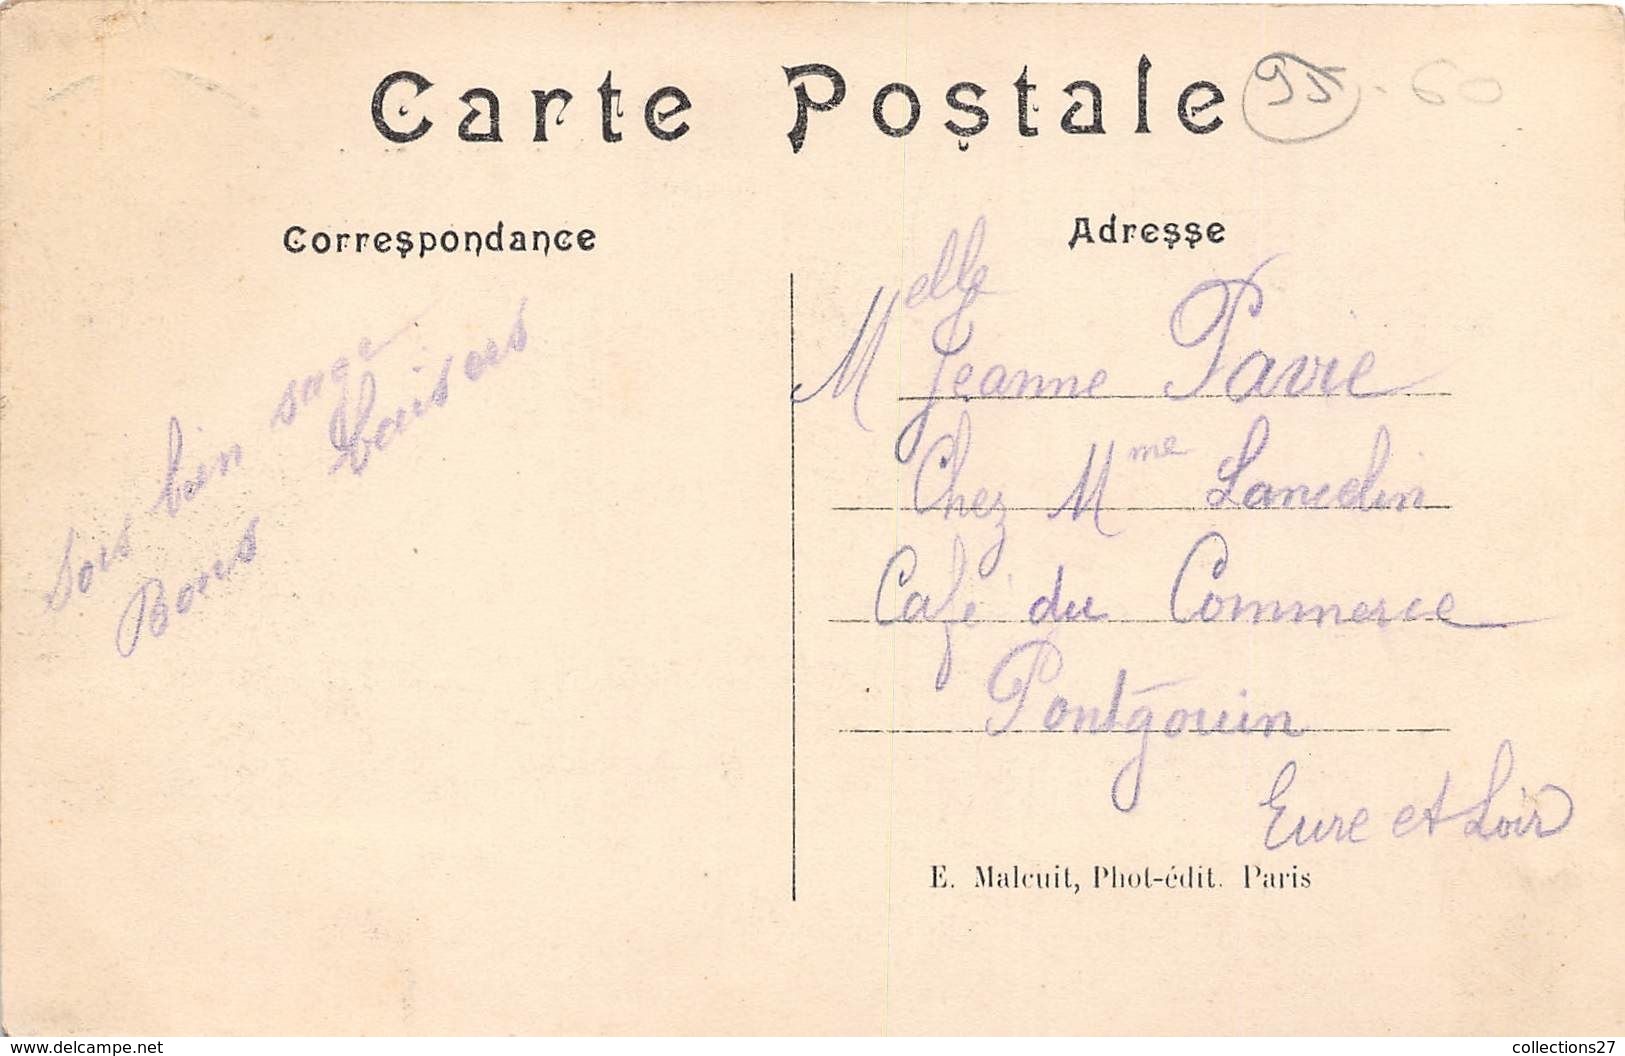 Carte Postale
95 - 60
Correspondance
Sois bien sage
Bons baisers
Adresse
Melle Jeanne Pavie
Chez Mme Lancelin
Café du Commerce
Pontgouin
Eure et Loir
E. Malcuit, Phot-édit. Paris
www.delcampe.net
collections27